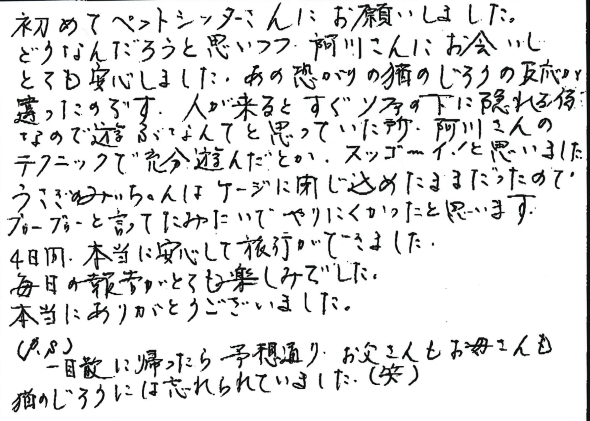 初めてペットシッターさんにお願いしました。
どうなんだろうと思いつつ、阿川さんにお会いし
とても安心しました。あの恐がりの猫のじろうの反応が
違ったのです。人が来るとすぐソファの下に隠れる
なので遊ぶなんてと思っていた所、阿川さんの
テクニックで充分遊んだとか、スッゴーイ!と思いました
うさぎのみぃちゃんはケージに閉じ込めたままだったので、
ブーブーと言ってたみたいでやりにくかったと思います。
4日間、本当に安心して旅行ができました。
毎日の報告がとても楽しみでした。
本当にありがとうございました。
(P.S)
一目散に帰ったら予想通り、お父さんもお母さんも
猫のじろうには忘れられていました。(笑)